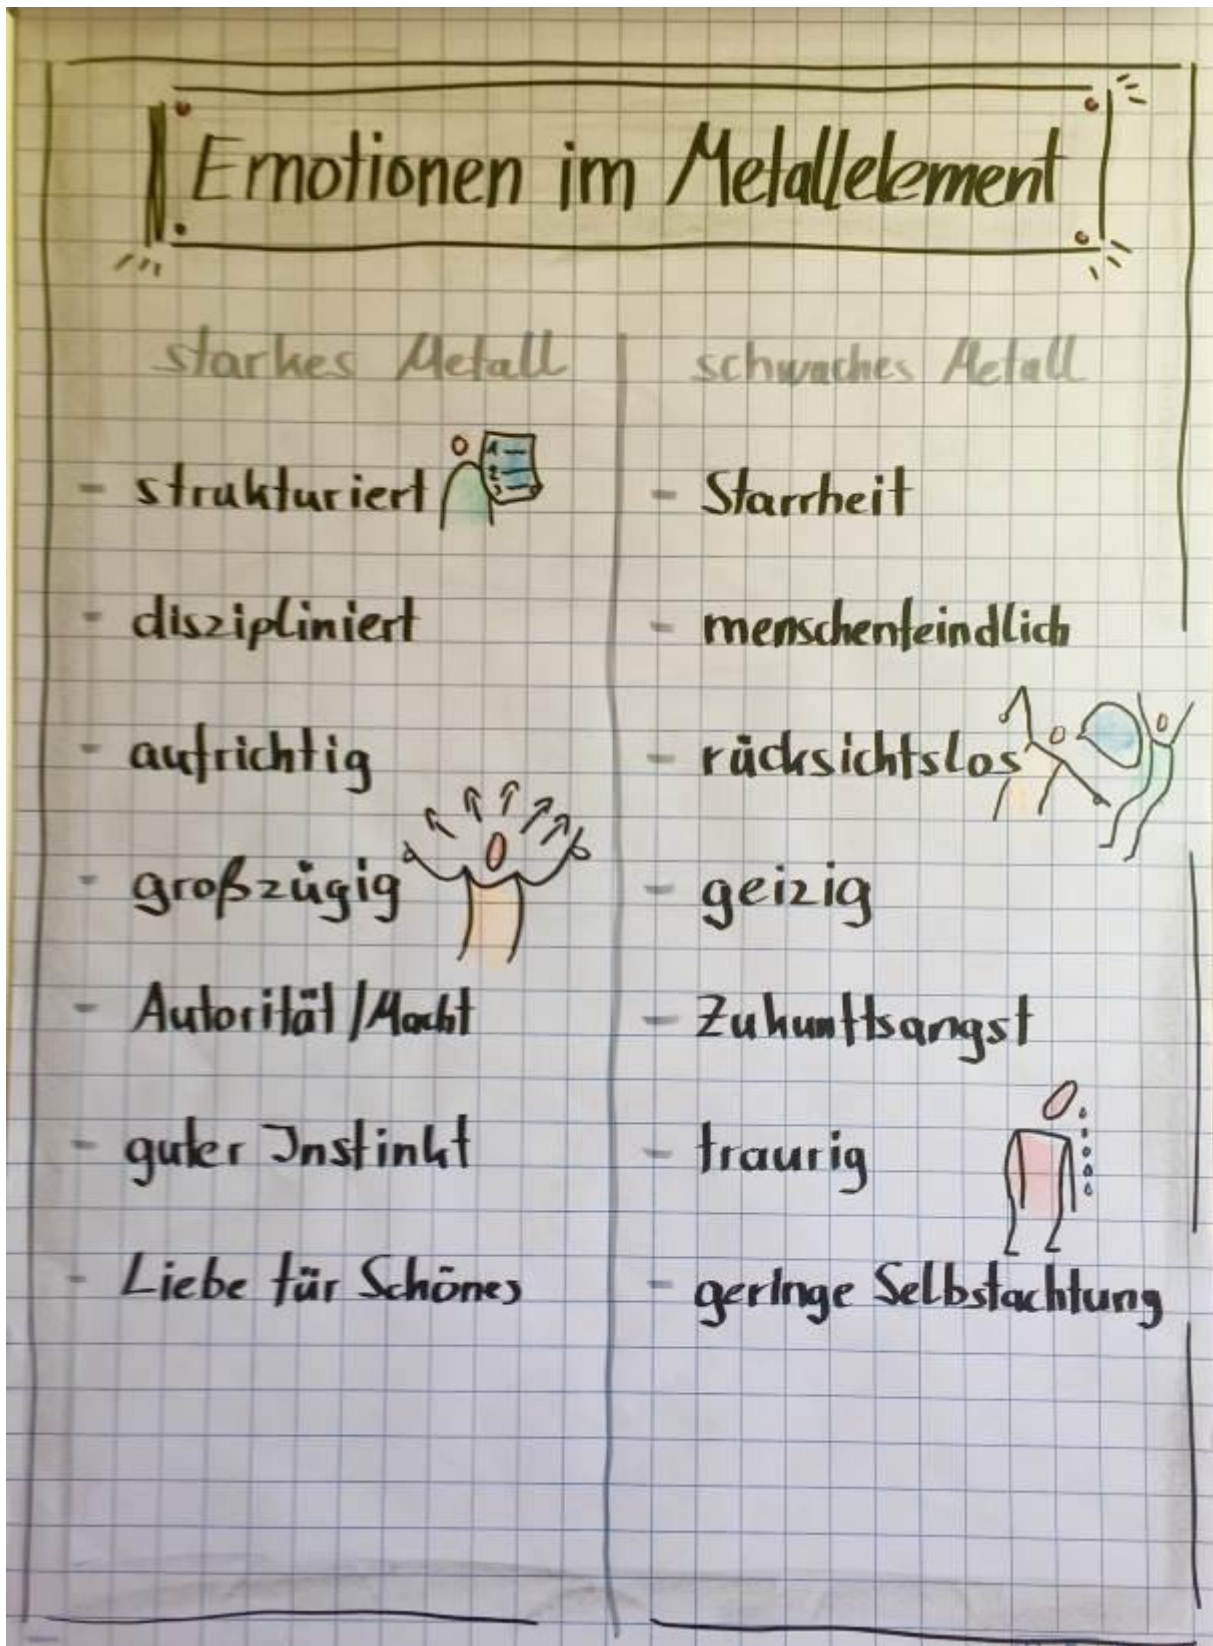 Emotionen im Metallelement
starkes Metall
- strukturiert
- diszipliniert
- aufrichtig
- großzügig
- Autorität/Macht
- guter Instinkt
- Liebe für Schönes
schwaches Metall
- Starrheit
- menschenfeindlich
- rücksichtslos
- geizig
- Zukunftsangst
- traurig
- geringe Selbstachtung